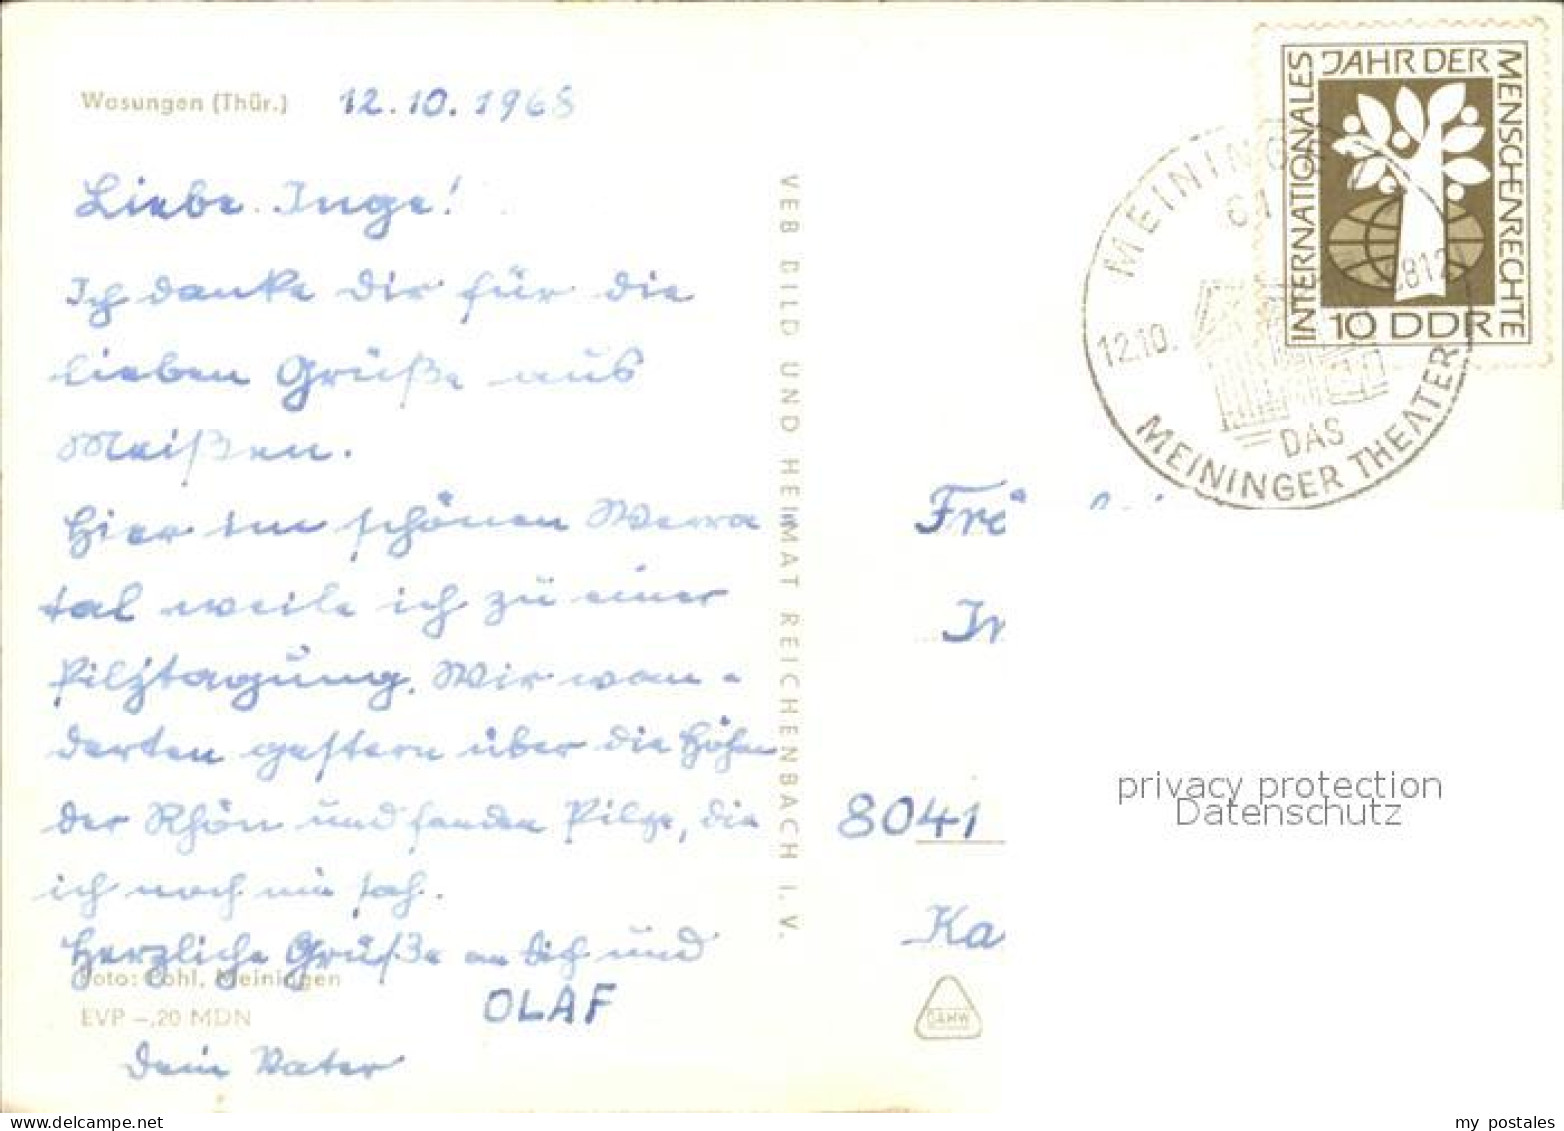 Wasungen (Thür.) 12.10.1968
Liebe Inge!
Ich danke Dir für die
lieben Grüße aus
Meißen.
Hier im schönen Werra
tal weile ich zu einer
Pilztagung. Wir wan-
derten gestern über die Höhen
der Rhön und fanden Pilze, die
ich noch nie sah.
Herzliche Grüße an Dich und
OLAF
Dein Vater
Foto: Pohl, Meiningen
EVP –,20 MDN
VEB BILD UND HEIMAT REICHENBACH I. V.
INTERNATIONALES JAHR DER MENSCHENRECHTE
10 DDR
MEININGEN
61
12.10.
6812
DAS
MEININGER THEATER
8041
Ka
privacy protection
Datenschutz
www.delcampe.net
my_postales